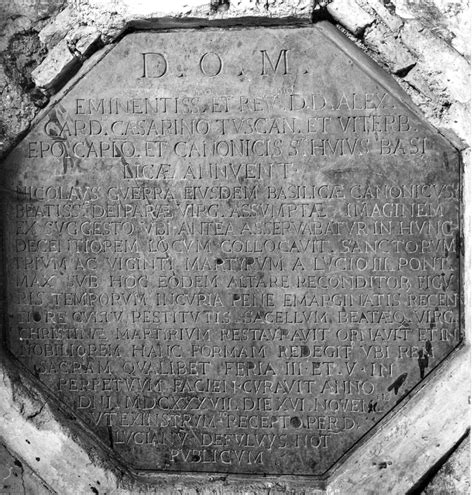 D. O. M.
EMINENTISS. ET REV. D.D. ALEX.
CARD. CASARINO TUSCAN. ET VITERB.
EPO CAPLO ET CANONICIS S. HVIVS BASI
LICÆ ANNVENT.
NICOLAVS GUERRA EJUSDEM BASILICÆ CANONICVS
BEATISS. DEIPARÆ VIRG. ASSVMPTÆ IMAGINEM
EX SUGGESTO VBI ANTEA ASSERVABATVR IN HUNC
DECENTIOREM LOCVM COLLOCAVIT. SANCTORVM
TRIVM AC VIGINTI MARTYRVM A LVCIO III. PONT.
MAX. SVB HOC EODEM ALTARE RECONDITOR. PICTV
RIS TEMPORVM INCVRIA PENE EMARGINATIS RECEN
TIORE CVLTV RESTITVTIS SACELLVM BEATÆQ. VIRG.
CHRISTINÆ MARTYRIVM RESTAVRAVIT ORNAVIT ET IN
NOBILIOREM HANC FORMAM REDEGIT VBI REM
SACRAM QVALIBET FERIA III. ET V. IN
PERPETVVM FACIEN. CVRAVIT ANNO
DNI MDCXXXVII. DIE XVI NOVEM.
VT EX INSTRVM. RECEPTO PER D.
LVCIANV DEFVLVVS NOT.
PVBLICVM